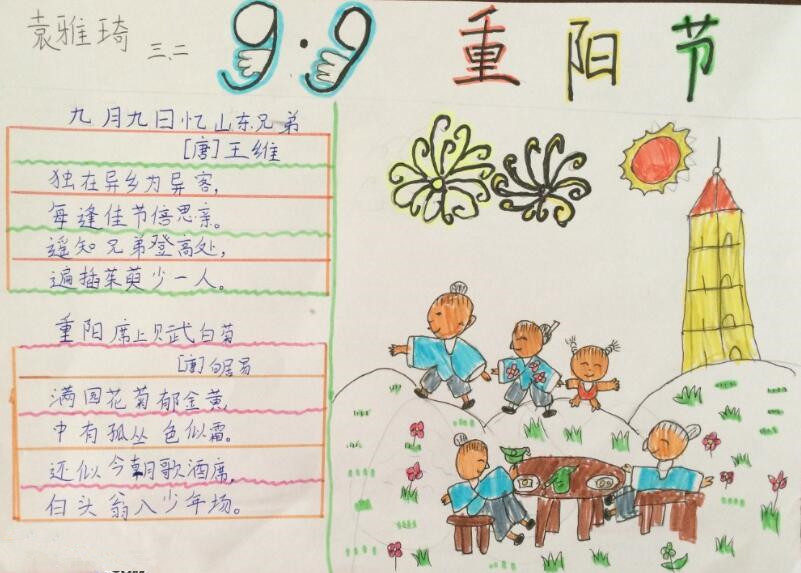 袁雅琦 三、二
9·9 重阳节
九月九日忆山东兄弟
[唐]王维
独在异乡为异客,
每逢佳节倍思亲。
遥知兄弟登高处,
遍插茱萸少一人。
重阳席上赋白菊
[唐]白居易
满园花菊郁金黄,
中有孤丛色似霜。
还似今朝歌酒席,
白头翁入少年场。